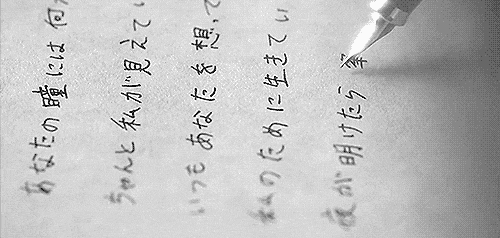 あなたの瞳には 何
ちゃんと私が見えてい
いつもあなたを想って
私のために生きてい
夜が明けたら